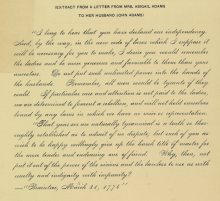 (EXTRACT FROM A LETTER FROM MRS. ABIGAIL ADAMS
TO HER HUSBAND JOHN ADAMS)
"I long to hear that you have declared our independency.
And, by the way, in the new code of laws which I suppose it
will be necessary for you to make, I desire you would remember
the ladies and be more generous and favorable to them than your
ancestors. Do not put such unlimited power into the hands of
the husbands. Remember, all men would be tyrants if they
could. If particular care and attention is not paid to the ladies,
we are determined to foment a rebellion, and will not hold ourselves
bound by any laws in which we have no voice or representation.
"That your sex are naturally tyrannical is a truth so tho-
roughly established as to admit of no dispute; but such of you as
wish to be happy willingly give up the harsh title of master for
the more tender and endearing one of friend. Why, then, not
put it out of the power of the vicious and the lawless to use us with
cruelty and indignity with impunity?
"Braintree, March 31, 1776"